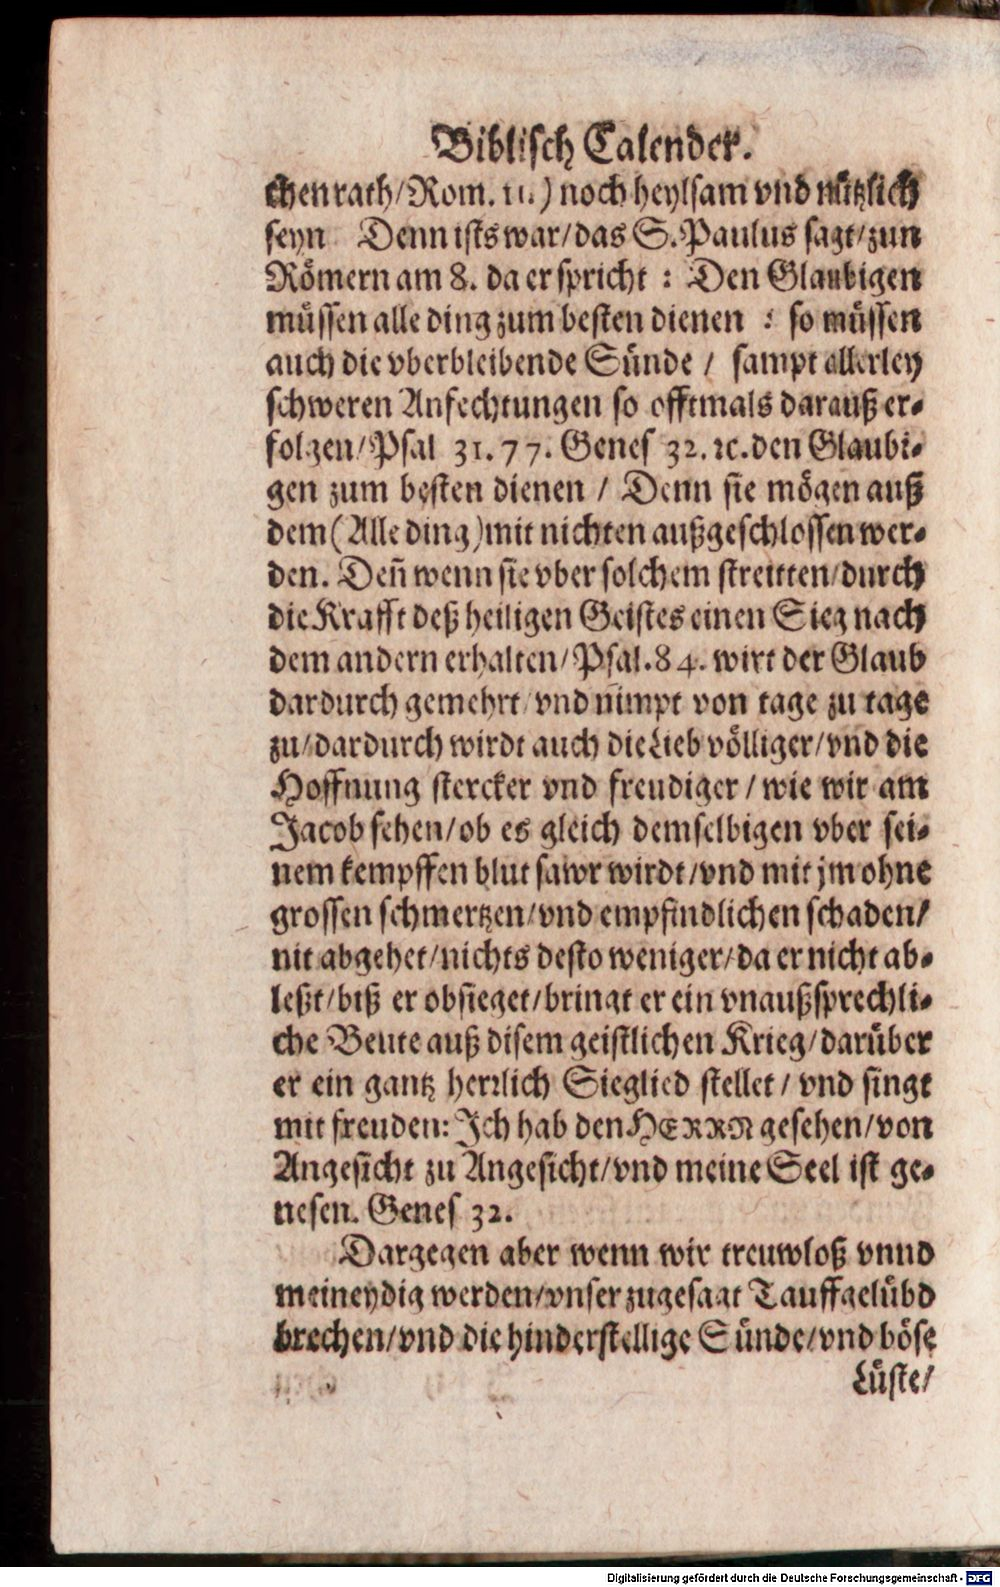 Biblisch Calender.
chen rath/Rom. 11.) noch heylsam vnd nützlich
seyn Denn ists war/das S. Paulus sagt/zun
Römern am 8. da er spricht : Den Glaubigen
müssen alle ding zum besten dienen : so müssen
auch die vberbleibende Sünde / sampt allerley
schweren Anfechtungen so offtmals darauß er-
folgen/Psal 31. 77. Genes 32. ꝛc. den Glaubi-
gen zum besten dienen / Denn sie mögen auß
dem (Alle ding) mit nichten außgeschlossen wer-
den. Deñ wenn sie vber solchem streitten/durch
die Krafft deß heiligen Geistes einen Sieg nach
dem andern erhalten/Psal. 84. wirt der Glaub
dardurch gemehrt/vnd nimpt von tage zu tage
zu/dardurch wirdt auch die Lieb völliger/vnd die
Hoffnung stercker vnd freudiger / wie wir am
Jacob sehen/ob es gleich demselbigen vber sei-
nem kempffen blut sawr wirdt/vnd mit jm ohne
grossen schmertzen/vnd empfindlichen schaden/
nit abgehet/nichts desto weniger/da er nicht ab-
leßt/biß er obsieget/bringt er ein vnaußsprechli-
che Beute auß disem geistlichen Krieg/darüber
er ein gantz herrlich Sieglied stellet / vnd singt
mit freuden: Ich hab den HERRN gesehen/von
Angesicht zu Angesicht/vnd meine Seel ist ge-
nesen. Genes 32.
Dargegen aber wenn wir treuwloß vnnd
meineydig werden/vnser zugesagt Tauffgelübd
brechen/vnd die hinderstellige Sünde/vnd böse
Lüste/
Digitalisierung gefördert durch die Deutsche Forschungsgemeinschaft - DFG